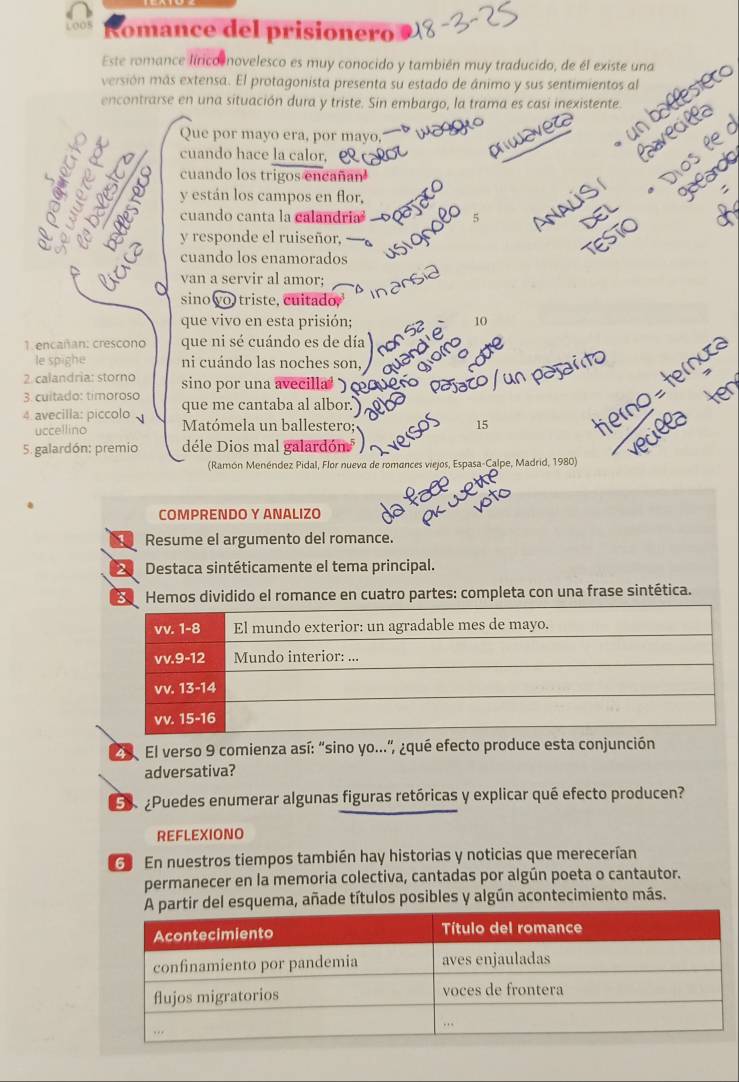 Romance del prisionero 18-3-25
Este romance lírico novelesco es muy conocido y también muy traducido, de él existe una
versión más extensa. El protagonista presenta su estado de ánimo y sus sentimientos al
encontrarse en una situación dura y triste. Sin embargo, la trama es casi inexistente.
Que por mayo era, por mayo, maggio
primavera
cuando hace la calor, el calor
cuando los trigos encañan¹
y están los campos en flor,
cuando canta la calandria² pájaro 5
y responde el ruiseñor, usignolo
cuando los enamorados
van a servir al amor;
sino yo, triste, cuitado,³ in ansia
que vivo en esta prisión; 10
que ni sé cuándo es de día non sa quand'è giorno
ni cuándo las noches son, o notte
sino por una avecilla⁴ pequeño pajaro / un pajarito
que me cantaba al albor. alba
Matómela un ballestero; 15
déle Dios mal galardón.⁵ 2 versos
(Ramón Menéndez Pidal, Flor nueva de romances viejos, Espasa-Calpe, Madrid, 1980)
el pajarecito
se muere por
la balestra
ballestero
lírica
ANALISI
DEL
TESTO
un ballestero
la avecilla
Dios le d
galardo
tierno = ternura
vecilla
1. encañan: crescono
le spighe
2. calandria: storno
3. cuitado: timoroso
4. avecilla: piccolo
uccellino
5. galardón: premio
COMPRENDO Y ANALIZO
1 Resume el argumento del romance.
2 Destaca sintéticamente el tema principal.
3 Hemos dividido el romance en cuatro partes: completa con una frase sintética.
vv. 1-8 El mundo exterior: un agradable mes de mayo.
vv.9-12 Mundo interior: ...
vv. 13-14
vv. 15-16
4 El verso 9 comienza así: "sino yo...", ¿qué efecto produce esta conjunción
adversativa?
5 ¿Puedes enumerar algunas figuras retóricas y explicar qué efecto producen?
REFLEXIONO
6 En nuestros tiempos también hay historias y noticias que merecerían
permanecer en la memoria colectiva, cantadas por algún poeta o cantautor.
A partir del esquema, añade títulos posibles y algún acontecimiento más.
Acontecimiento Título del romance
confinamiento por pandemia aves enjauladas
flujos migratorios voces de frontera
... ...